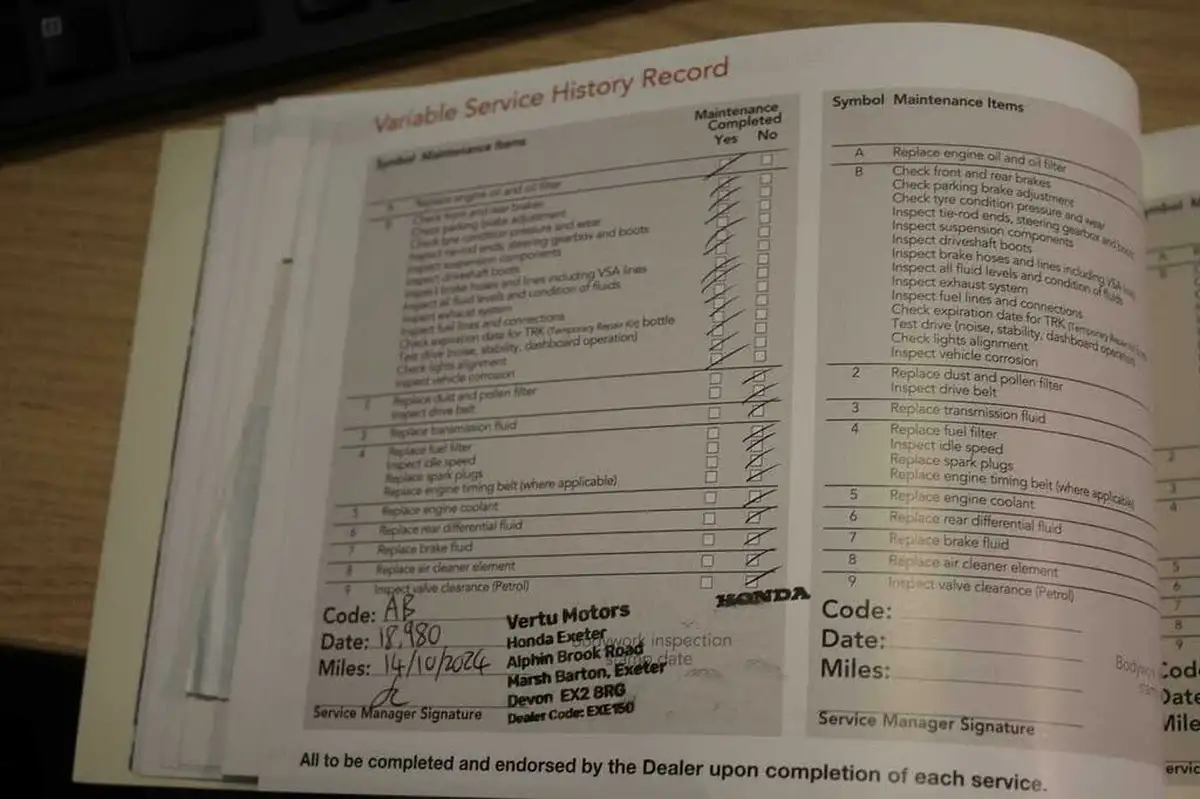 Variable Service History Record
Symbol Maintenance Items
Maintenance
Completed
Yes No
A Replace engine oil and oil filter
B Check front and rear brakes
Check parking brake adjustment
Check tyre condition pressure and wear
Inspect tie-rod ends, steering gearbox and boots
Inspect suspension components
Inspect driveshaft boots
Inspect brake hoses and lines including VSA lines
Inspect all fluid levels and condition of fluids
Inspect exhaust system
Inspect fuel lines and connections
Check expiration date for TRK (Temporary Repair Kit) bottle
Test drive (noise, stability, dashboard operation)
Check lights alignment
Inspect vehicle corrosion
2 Replace dust and pollen filter
Inspect drive belt
3 Replace transmission fluid
4 Replace fuel filter
Inspect idle speed
Replace spark plugs
Replace engine timing belt (where applicable)
5 Replace engine coolant
6 Replace rear differential fluid
7 Replace brake fluid
8 Replace air cleaner element
9 Inspect valve clearance (Petrol)
Code: AB
Date: 18,980
Miles: 14/10/2024
Service Manager Signature
HONDA
Vertu Motors
Honda Exeter
Alphin Brook Road
Marsh Barton, Exeter
Devon EX2 8RG
Dealer Code: EXE150
Bodywork inspection
stamp date
Symbol Maintenance Items
A Replace engine oil and oil filter
B Check front and rear brakes
Check parking brake adjustment
Check tyre condition pressure and wear
Inspect tie-rod ends, steering gearbox and boots
Inspect suspension components
Inspect driveshaft boots
Inspect brake hoses and lines including VSA lines
Inspect all fluid levels and condition of fluids
Inspect exhaust system
Inspect fuel lines and connections
Check expiration date for TRK (Temporary Repair
Test drive (noise, stability, dashboard operation)
Check lights alignment
Inspect vehicle corrosion
2 Replace dust and pollen filter
Inspect drive belt
3 Replace transmission fluid
4 Replace fuel filter
Inspect idle speed
Replace spark plugs
Replace engine timing belt (where applicable)
5 Replace engine coolant
6 Replace rear differential fluid
7 Replace brake fluid
8 Replace air cleaner element
9 Inspect valve clearance (Petrol)
Code:
Date:
Miles:
Service Manager Signature
All to be completed and endorsed by the Dealer upon completion of each service.
2
3
4
5
6
7
8
9
Cod
Date
Mile